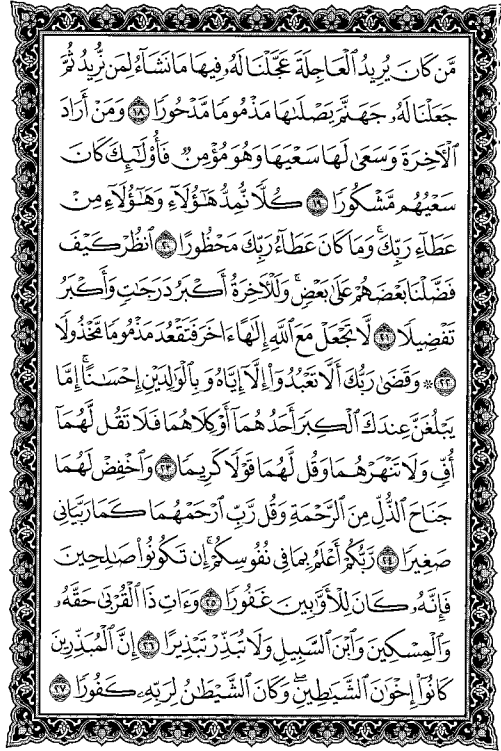 مَّن كَانَ يُرِيدُ ٱلْعَاجِلَةَ عَجَّلْنَا لَهُۥ فِيهَا مَا نَشَآءُ لِمَن نُّرِيدُ ثُمَّ
جَعَلْنَا لَهُۥ جَهَنَّمَ يَصْلَىٰهَا مَذْمُومًا مَّدْحُورًا ١٨ وَمَنْ أَرَادَ
ٱلْأَخِرَةَ وَسَعَىٰ لَهَا سَعْيَهَا وَهُوَ مُؤْمِنٌ فَأُو۟لَٰٓئِكَ كَانَ
سَعْيُهُم مَّشْكُورًا ١٩ كُلًّا نُّمِدُّ هَٰٓؤُلَآءِ وَهَٰٓؤُلَآءِ مِنْ
عَطَآءِ رَبِّكَ ۚ وَمَا كَانَ عَطَآءُ رَبِّكَ مَحْظُورًا ٢٠ ٱنظُرْ كَيْفَ
فَضَّلْنَا بَعْضَهُمْ عَلَىٰ بَعْضٍ ۚ وَلَلْأَخِرَةُ أَكْبَرُ دَرَجَٰتٍ وَأَكْبَرُ
تَفْضِيلًا ٢١ لَّا تَجْعَلْ مَعَ ٱللَّهِ إِلَٰهًا ءَاخَرَ فَتَقْعُدَ مَذْمُومًا مَّخْذُولًا
٢٢ ۞ وَقَضَىٰ رَبُّكَ أَلَّا تَعْبُدُوٓا۟ إِلَّآ إِيَّاهُ وَبِٱلْوَٰلِدَيْنِ إِحْسَٰنًا ۚ إِمَّا
يَبْلُغَنَّ عِندَكَ ٱلْكِبَرَ أَحَدُهُمَآ أَوْ كِلَاهُمَا فَلَا تَقُل لَّهُمَآ
أُفٍّ وَلَا تَنْهَرْهُمَا وَقُل لَّهُمَا قَوْلًا كَرِيمًا ٢٣ وَٱخْفِضْ لَهُمَا
جَنَاحَ ٱلذُّلِّ مِنَ ٱلرَّحْمَةِ وَقُل رَّبِّ ٱرْحَمْهُمَا كَمَا رَبَّيَانِى
صَغِيرًا ٢٤ رَّبُّكُمْ أَعْلَمُ بِمَا فِى نُفُوسِكُمْ ۚ إِن تَكُونُوا۟ صَٰلِحِينَ
فَإِنَّهُۥ كَانَ لِلْأَوَّٰبِينَ غَفُورًا ٢٥ وَءَاتِ ذَا ٱلْقُرْبَىٰ حَقَّهُۥ
وَٱلْمِسْكِينَ وَٱبْنَ ٱلسَّبِيلِ وَلَا تُبَذِّرْ تَبْذِيرًا ٢٦ إِنَّ ٱلْمُبَذِّرِينَ
كَانُوٓا۟ إِخْوَٰنَ ٱلشَّيَٰطِينِ ۖ وَكَانَ ٱلشَّيْطَٰنُ لِرَبِّهِۦ كَفُورًا ٢٧